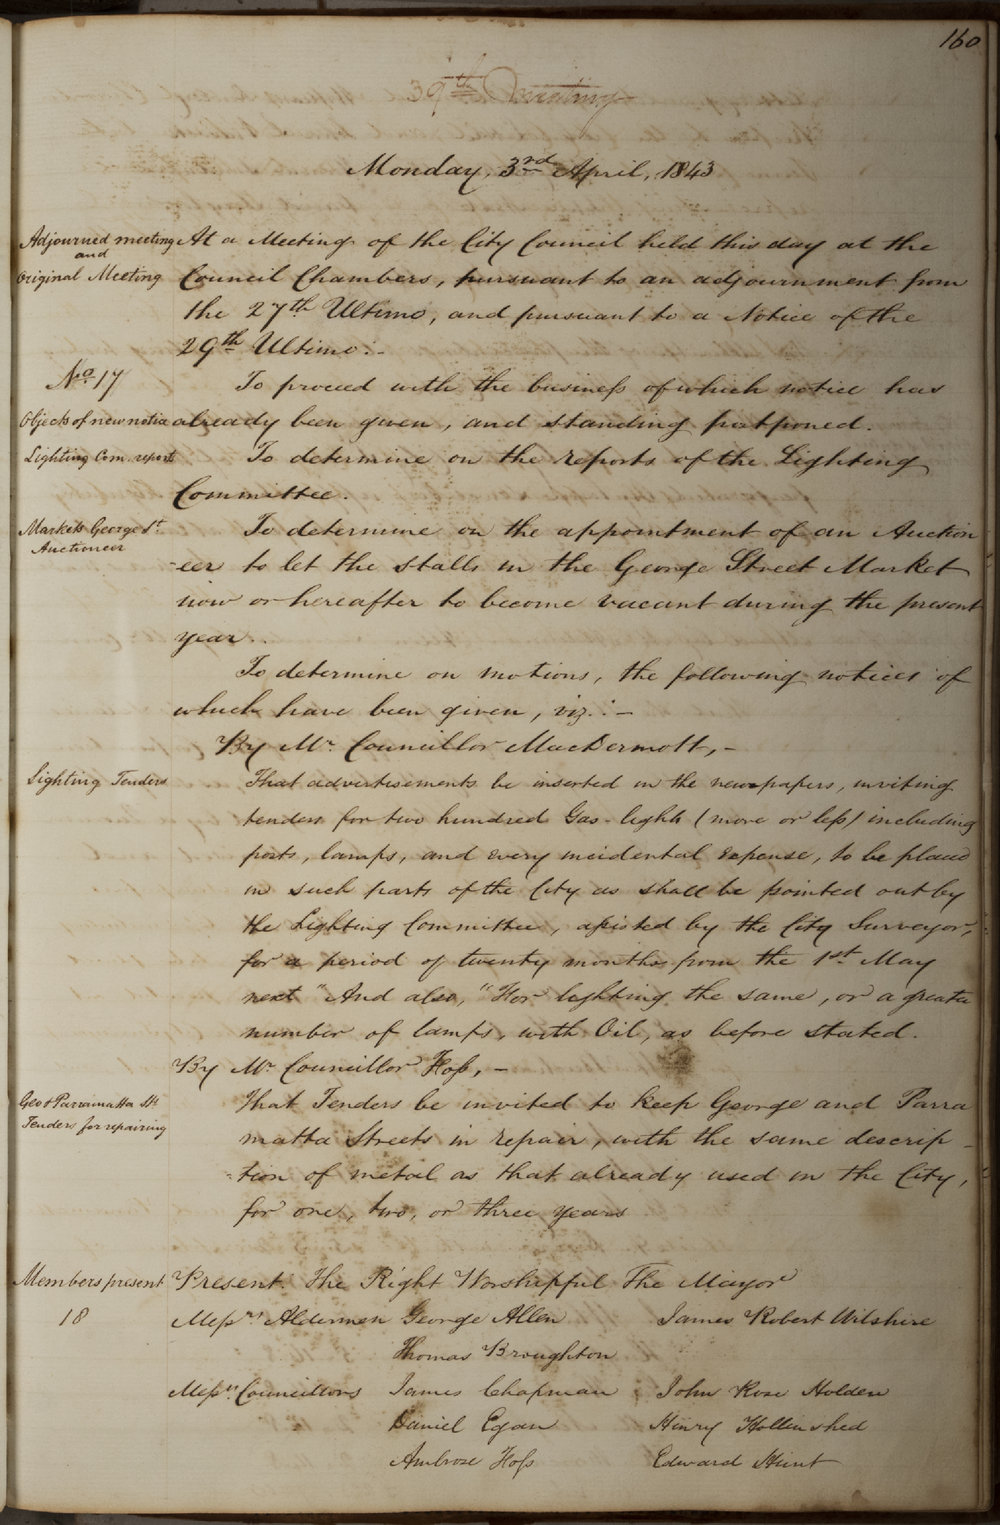 160
39th Meeting
Monday, 3rd April, 1843
Adjourned meeting and Original Meeting
At a Meeting of the City Council held this day at the
Council Chambers, pursuant to an adjournment from
the 27th Ultimo, and pursuant to a Notice of the
29th Ultimo:-
No. 17
To proceed with the business of which notice has
Objects of new notice
already been given, and standing postponed.
Lighting Com. report
To determine on the reports of the Lighting
Committee.
Markets George St. Auctioneer
To determine on the appointment of an Auction
-eer to let the stalls in the George Street Market
now or hereafter to become vacant during the present
year.
To determine on motions, the following notices of
which have been given, viz.:-
By Mr. Councillor MacDermott,-
Lighting Tenders
That advertisements be inserted in the newspapers, inviting
tenders for two hundred Gas-lights (more or less) including
posts, lamps, and every incidental expense, to be placed
in such parts of the City as shall be pointed out by
the Lighting Committee, assisted by the City Surveyor,
for a period of twenty months from the 1st May
next "And also, "For lighting the same, or a greater
number of lamps, with Oil, as before stated.
By Mr. Councillor Foss,-
Geo & Parramatta Sts. Tenders for repairing
That Tenders be invited to keep George and Parra
matta Streets in repair, with the same descrip-
-tion of metal as that already used in the City,
for one, two, or three years
Members present
18
Present. The Right Worshipful The Mayor
Messrs Aldermen George Allen James Robert Wilshire
Thomas Broughton
Messrs Councillors James Chapman John Rose Holden
Daniel Egan Henry Hollinshed
Ambrose Foss Edward Hunt